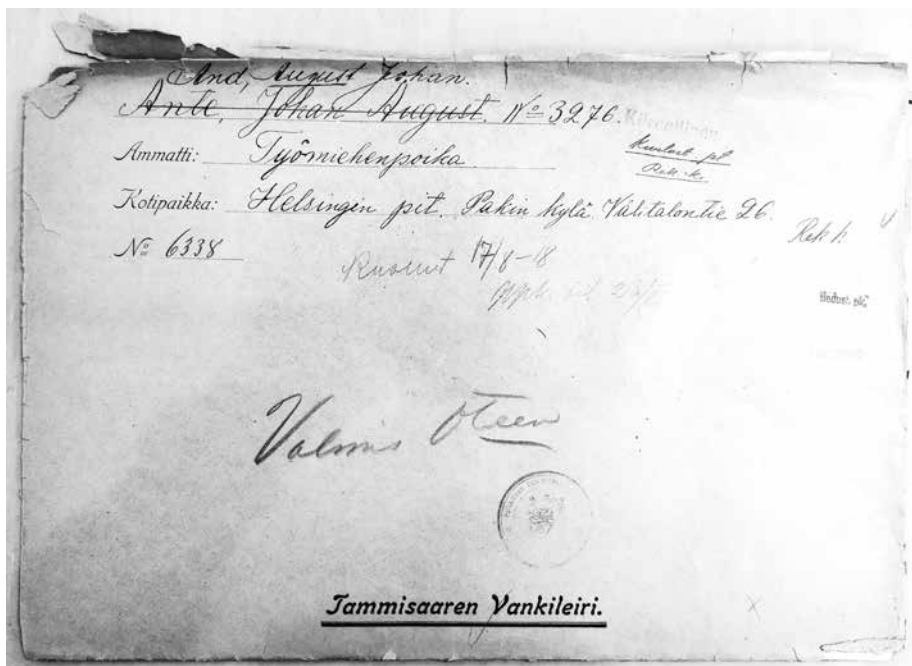 And, August Johan.
Ante, Johan August. No 3276.
Ammatti: Työmiehenpoika
Kotipaikka: Helsingin pit. Pakin kylä Välitalontie 26.
No 6338
Kuollut 17/8-18
Rek. k.
Rek. k.
Valmis
Tammisaaren Vankileiri.